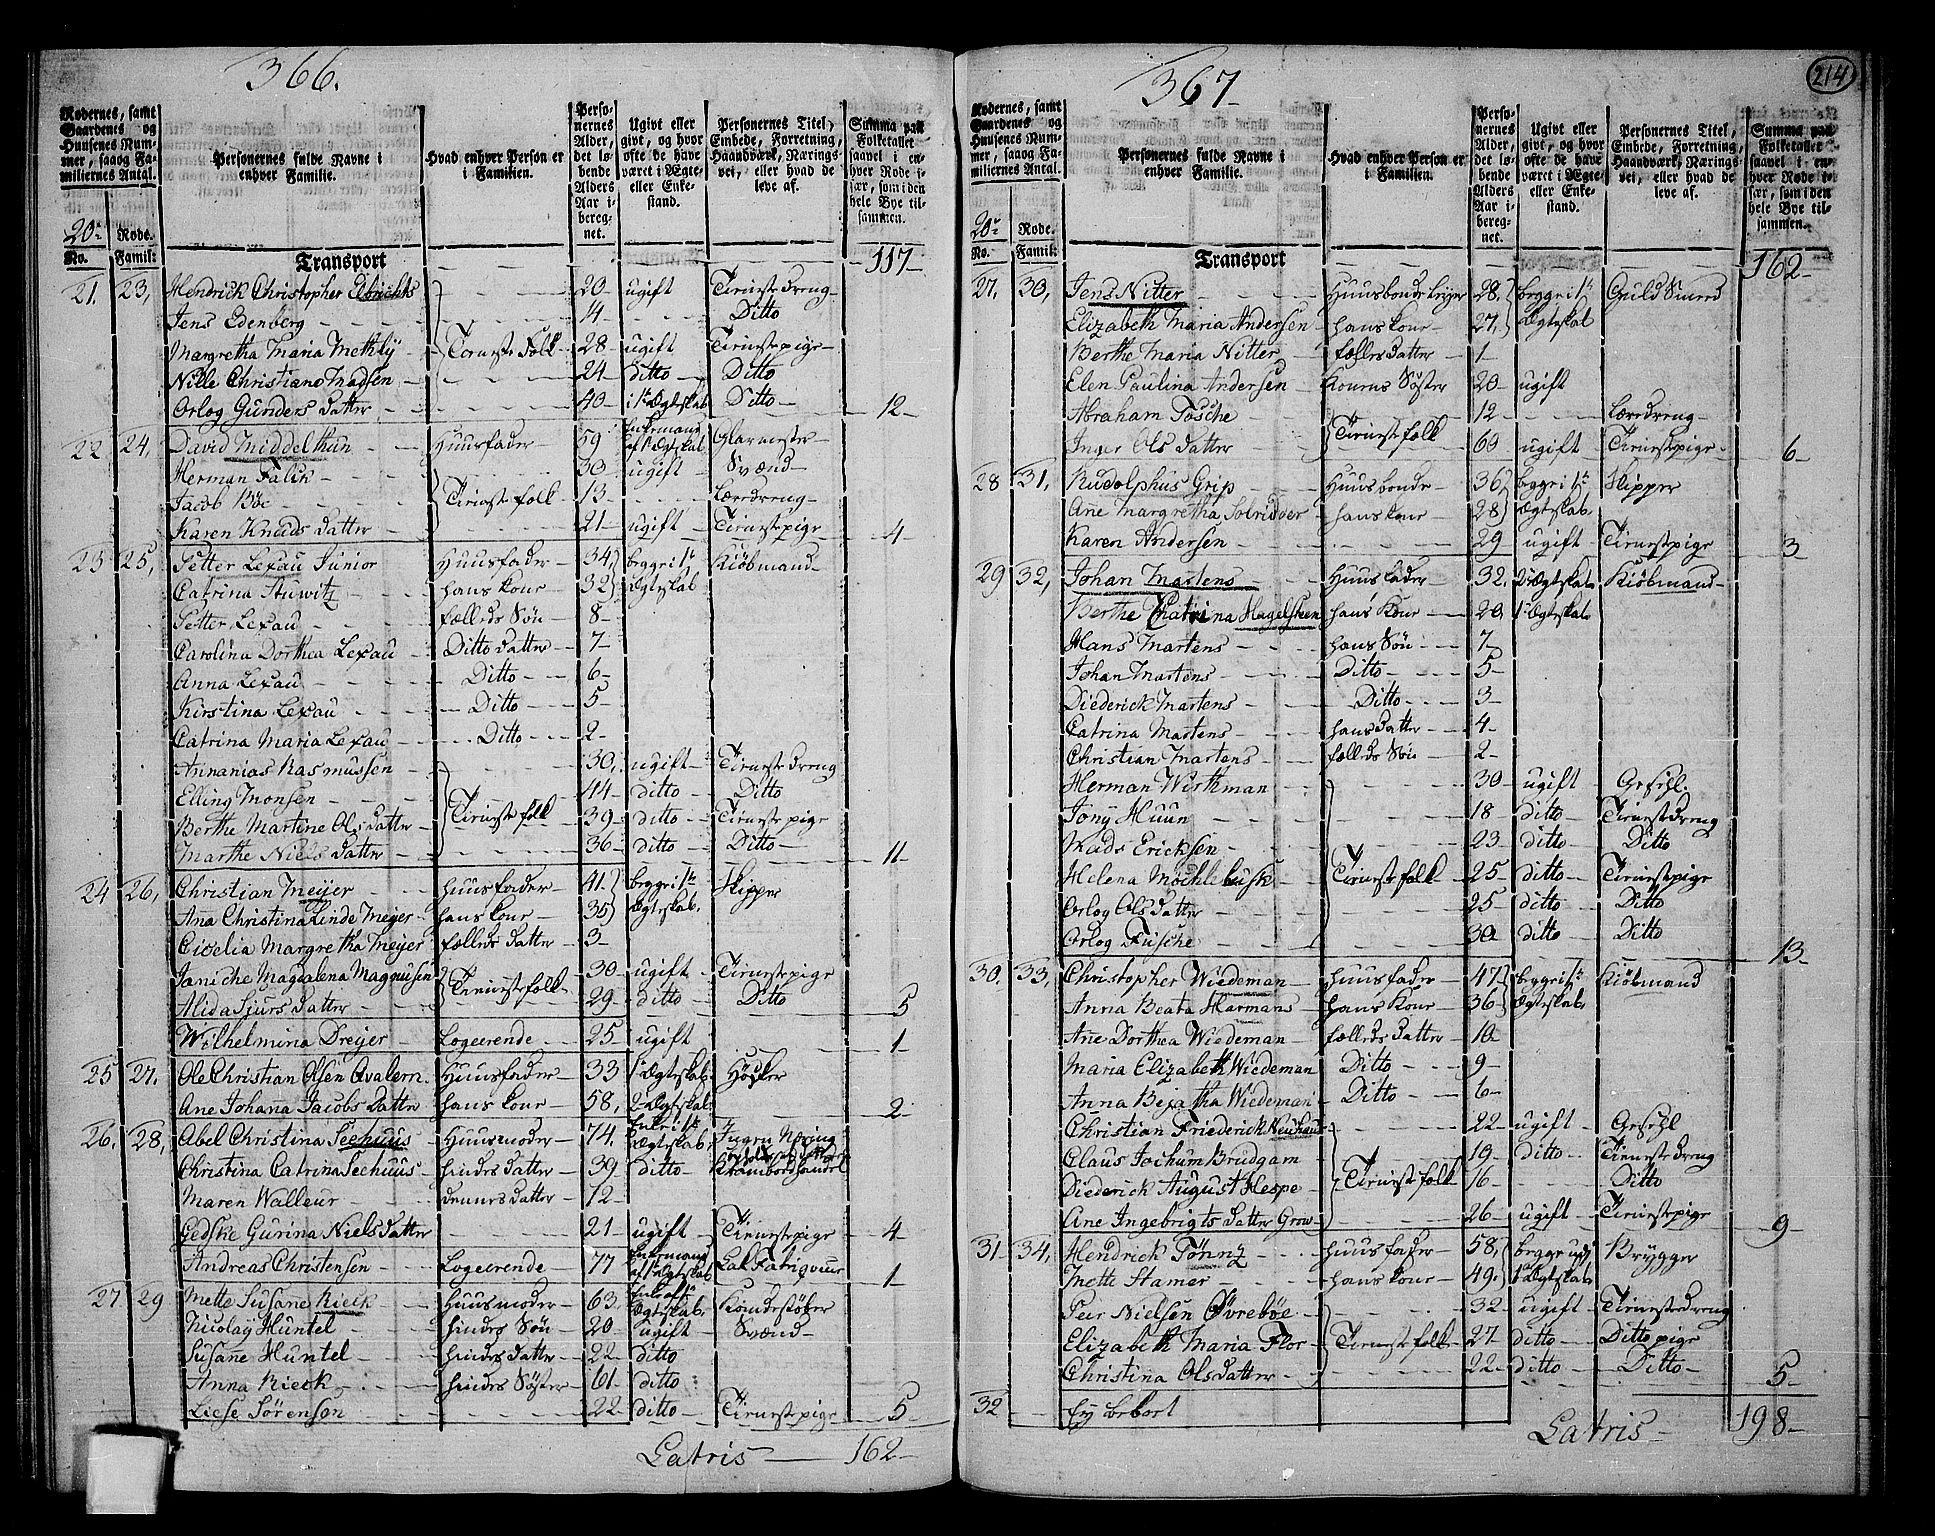 366.
Rodernes, samt Gaardenes og Huusenes Nummer, saaog Familiernes Antal.
Personernes fulde Navne i enhver Familie.
Hvad enhver Person er i Familien.
Personernes Alder, det løbende Alders Aar iberegnet.
Ugivt eller givt, og hvor ofte de have været i Ægte- eller Enkestand.
Personernes Titel, Embede, Forretning, Haandværk, Næringsvei, eller hvad de leve af.
Summa paa Folketallet saavel i enhver Rode især, som i den hele Bye tilsammen.
20de Rode.
No. Famil:
Transport 117
21. 23, Hendrick Christopher 20 ugift Tienestedreng
Jens Edenberg 14 Ditto
Margretha Maria Methly Tieneste Folk 28 ugift Tienestepige
Nille Christiane Madsen 24 ditto Ditto
Orlog Gunders datter 40 i 1te Ægteskab Ditto 12
22 24, David Middelthun Huusfader 59 Enkemand af 1te Ægteskab Glarmester
Herman Falck 30 ugift Svænd
Jacob Böe Tienestefolk 13 Læredreng
Karen Knuds datter 21 ugift Tienestepige 4
23 25, Petter Lexau Junior Huusfader 34 begge i 1te Kiöbmand
Catrina Stuwitz hans kone 32 Ægteskab
Petter Lexau fælleds Sön 8
Carolina Dorthea Lexau Ditto datter 7
Anna Lexau Ditto 6
Kirstina Lexau Ditto 5
Catrina Maria Lexau Ditto 2
Annanias Rasmussen 30 ugift Tienestedreng
Elling Monsen 44 ditto Ditto
Berthe Martine Ols datter Tienestefolk 39 ditto Tienestepige
Marthe Niels datter 36 ditto Ditto 11
24 26, Christian Meyer Huusfader 41 begge i 1te Skipper
Ana Christina Linde Meyer hans kone 35 Ægteskab
Cicelia Margretha Meyer fælleds datter 3
Janiche Magdalena Magnusen Tienestefolk 30 ugift Tienestepige
Alida Sjurs datter 29 ditto Ditto 5
Wilhelmina Dreyer Logerende 25 ugift 1
25 27. Ole Christian Olsen Qvalem Huusfader 33 1te Ægteskab Höcker
Ane Johana Jacobs datter hans kone 58, 2 Ægteskab 2
26. 28, Abel Christina Seehuus Huusmoder 74. Enke i 1te Ægteskab Ingen Næring
Christina Catrina Seehuus hindes datter 39 ditto Kramboehandel
Maren Walleur dennes datter 12
Gedske Gurina Niels datter 21 ugift Tienestepige 4
Andreas Christensen Logerende 77 Enkemand af 1te Ægteskab Lak Fabriqveur 1
27 29 Mette Susane Rieck Huusmoder 63. Enke af 1te Ægteskab
Nicolay Huntel hindes Sön 20 ugift Svænd
Susane Huntel hindes datter 22 ditto
Anna Rieck hindes Söster 61 ditto
Liese Sörenson 22 ditto Tienestepige 5
Latris 162
367
214
Rodernes, samt Gaardenes og Huusenes Nummer, saaog Familiernes Antal.
Personernes fulde Navne i enhver Familie.
Hvad enhver Person er i Familien.
Personernes Alder, det løbende Alders Aar iberegnet.
Ugivt eller givt, og hvor ofte de have været i Ægte- eller Enkestand.
Personernes Titel, Embede, Forretning, Haandværk, Næringsvei, eller hvad de leve af.
Summa paa Folketallet saavel i enhver Rode især, som i den hele Bye tilsammen.
20de Rode.
No. Famil:
Transport 162
27. 30, Jens Nitter Huusbonde leyer 28, begge i 1te Guld Smed
Elizabeth Maria Andersen hans kone 27, Ægteskab
Berthe Maria Nitter fælles datter 1
Elen Paulina Andersen Konens Söster 20 ugift
Abraham Tosche Tienestefolk 12 Læredreng
Inger Ols datter 69 ugift Tienestepige 6
28 31, Rudolphus Grip Huusbonde 36 begge i 1te Skipper
Ane Margretha hans kone 28 Ægteskab
Karen Andersen 29 ugift Tienestepige 3
29 32, Johan Martens Huusfader 32. 2 Ægteskab Kiöbmand
Berthe Chatrina Hagelsteen hans Kone 20 1te Ægteskab
Hans Martens hans Sön 7
Johan Martens Ditto 5
Diederick Martens Ditto 3
Catrina Martens hans datter 4
Christian Martens fælleds Sön 2
Herman Wirthman 30 ugift Gesehl.
Tony Huun 18 ditto Tienestedreng
Mads Ericksen 23 ditto Ditto
Helena Möchlebusk Tienestefolk 25 ditto Tienestepige
Orlog Olsdatter 25 ditto Ditto
Orlog Fusche 30 ditto Ditto 13
30. 33, Christopher Wiedeman Huusfader 47 begge i 1te Kiöbmand
Anna Beata Harmans hans Kone 36 Ægteskab
Ane Dorthea Wiedeman fælleds datter 10
Maria Elizabeth Wiedeman Ditto 9
Anna Bejatha Wiedeman Ditto 6
Christian Friederick Neuhaus 22 ugift Gesehl
Claus Jochum Brudgam 19 ditto Tienestedreng
Diederick August Hespe Tienestefolk 16 Ditto
Ane Ingebrigts datter Grow 26 ugift Tienestepige 9
31 34, Hendrick Tönny Huusfader 58, begge udj Brygger
Mette Stamer hans kone 49. 1te Ægteskab
Peer Nielsen Øvrebøe 32 ugift Tienestedreng
Elizabeth Maria Flor Tienestefolk 27 ditto Ditto pige
Christina Olsdatter 22 ditto Ditto 5
32 Ey beboet
Latris 198